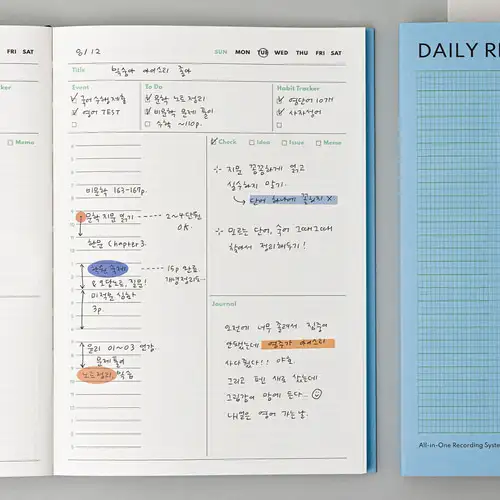 FRI SAT
Memo
8/12
SUN MON TUE WED THU FRI SAT
Title
Event
국어 수행 제출
영어 TEST
To Do
문학 노트 정리
비문학 문제 풀이
수학 ~120p.
Habit Tracker
영단어 10개
사자성어
비문학 163-167p.
문학 지문 읽기 2~4단원
OK.
한문 chapter 3.
학원 숙제 15p 완료.
& 오답노트, 질문! 개념정리도~
미적분 심화
3p.
윤리 01~03 연강.
문제 풀이
노트정리 복습
Check Idea Issue Memo
지문 꼼꼼하게 읽고
실수하지 말기.
단어 하나에 꽂히지 X
모르는 단어, 숙어 그때그때
합해서 정리해두기!
Journal
오전에 너무 졸려서 집중이
안됐는데 연주가 아이스티
사다줬다!! 야호
그리고 펜 새로 샀는데
그립감이 맘에 든다...
내일은 영어 가는 날.
DAILY RE
All-in-One Recording System